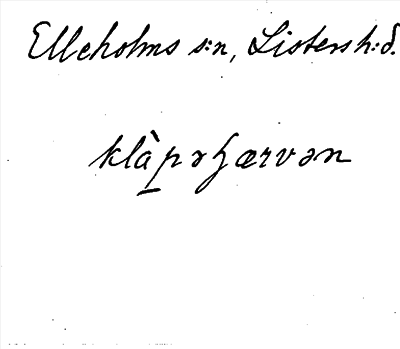 Elleholms s:n, Listersh:d.
klàpəꞕærvən